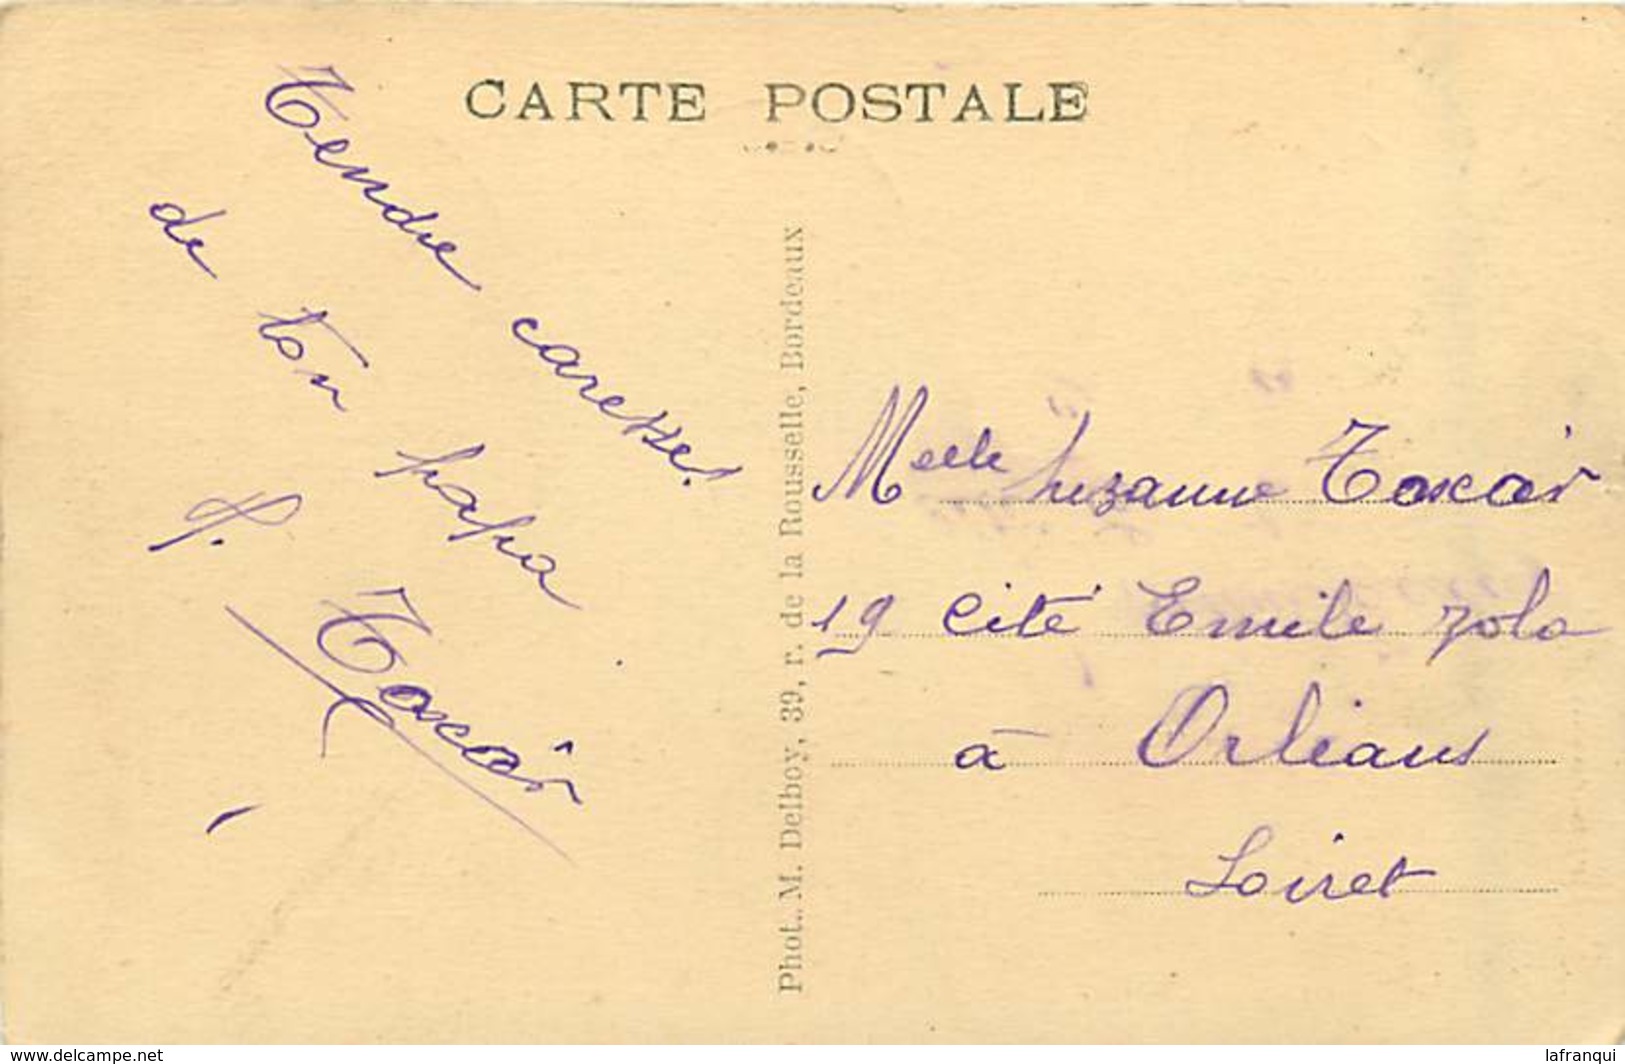 CARTE POSTALE
Tendre caresse
de ton papa
P.
Phot. M. Delboy, 39, r. de la Rousselle, Bordeaux
Melle Suzanne
19 Cité Emile Zola
à Orléans
Loiret
www.delcampe.net
lafranqui